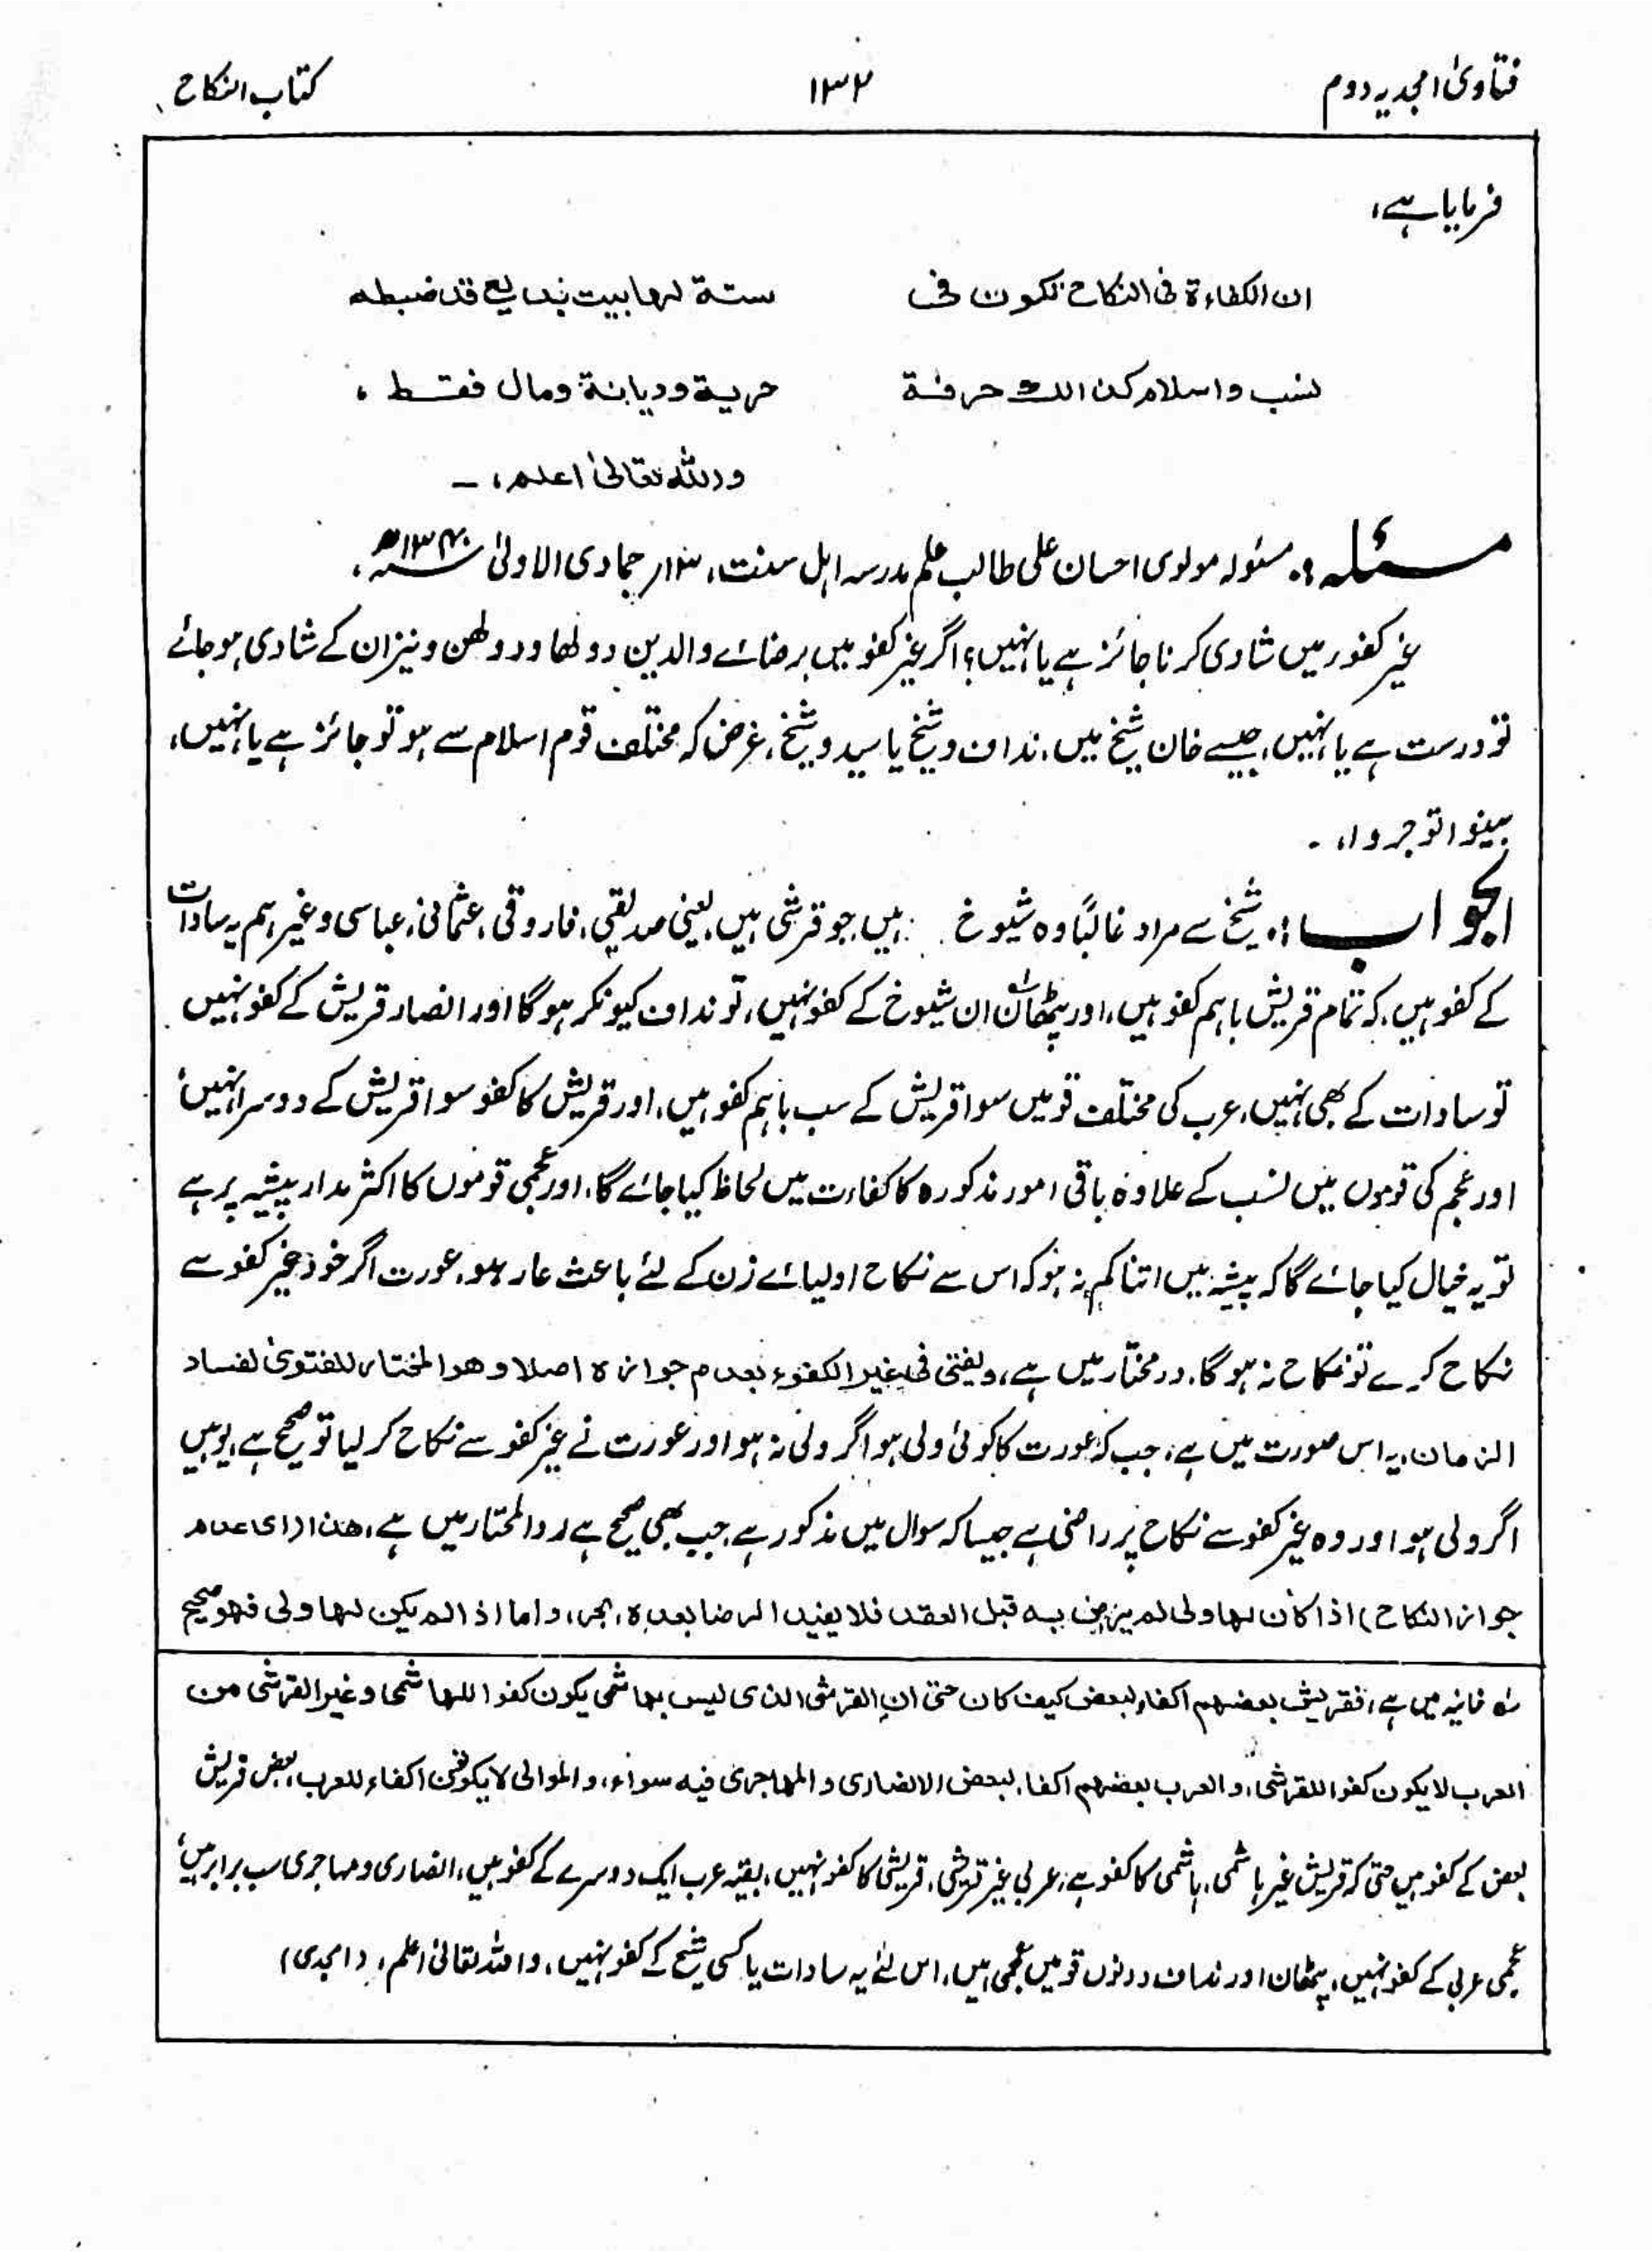 فتاویٰ امجدیہ دوم ۱۳۲ کتاب النکاح
فرمایا ہے،
ان الکفاءۃ فی النکاح تکون فی ستۃ لہا بیت بدیع قد ضبطہ
نسب واسلام کذالک حرفۃ حریۃ ودیانۃ ومال فقط ،
واللہ تعالیٰ اعلم، ـ
مسئلہ :۔ مسئولہ مولوی احسان علی طالب علم مدرسہ اہل سنت، ۱۳؍ جمادی الاولیٰ ۱۳۴۰ھ،
غیر کفور میں شادی کرنا جائز ہے یا نہیں؟ اگر غیر کفو میں برضائے والدین دولھا ودولھن ونیز ان کے شادی ہو جائے
تو درست ہے یا نہیں، جیسے خان شیخ میں، نداف وشیخ یا سید وشیخ، غرض کہ مختلف قوم اسلام سے ہو تو جائز ہے یا نہیں،
بینوا توجروا، ۔
الجواب :۔ شیخ سے مراد غالبًا وہ شیوخ ہیں جو قرشی ہیں، یعنی صدیقی، فاروقی، عثمانی، عباسی وغیرہم یہ سادات
کے کفو ہیں، کہ تمام قریش باہم کفو ہیں، اور پٹھان ان شیوخ کے کفو نہیں، تو نداف کیونکر ہوگا اور انصار قریش کے کفو نہیں
تو سادات کے بھی نہیں، عرب کی مختلف قومیں سوا قریش کے سب باہم کفو ہیں، اور قریش کا کفو سوا قریش کے دوسرا نہیں
اور عجم کی قوموں میں نسب کے علاوہ باقی امور مذکورہ کا کفاءت میں لحاظ کیا جائے گا، اور عجمی قوموں کا اکثر مدار پیشہ پر ہے
تو یہ خیال کیا جائے گا کہ پیشہ میں اتنا کم نہ ہو کہ اس سے نکاح اولیائے زن کے لئے باعث عار ہو، عورت اگر خود غیر کفو سے
نکاح کرے تو نکاح نہ ہوگا، درمختار میں ہے، ویفتی فی غیر الکفوء بعدم جوازہ اصلا وھو المختار للفتویٰ لفساد
الزمان، یہ اس صورت میں ہے، جب کہ عورت کا کوئی ولی ہو اگر ولی نہ ہو اور عورت نے غیر کفو سے نکاح کر لیا تو صحیح ہے، یوہیں
اگر ولی ہو اور وہ غیر کفو سے نکاح پر راضی ہے جیسا کہ سوال میں مذکور ہے جب بھی صحیح ہے ردالمحتار میں ہے، ھذا (ای عدم
جواز النکاح) اذا کان لہا ولی لم یرض بہ قبل العقد فلا یفید الرضا بعدہ، بحر، واما اذا لم یکن لہا ولی فہو صحیح
لہ خانیہ میں ہے، فقریش بعضہم اکفاء لبعض کیف کان حتی ان القرشی الذی لیس بہاشمی یکون کفوا للہاشمی وغیر القرشی من
العرب لا یکون کفوا للقرشی، والعرب بعضہم اکفاء لبعض الانصاری والمہاجری فیہ سواء، والموالی لا یکون اکفاء للعرب، بعض قریش
بعض کے کفو ہیں حتی کہ قریش غیر ہاشمی، ہاشمی کا کفو ہے، عربی غیر قرشی، قریشی کا کفو نہیں، بقیہ عرب ایک دوسرے کے کفو ہیں، انصاری ومہاجری سب برابر ہیں
عجمی عربی کے کفو نہیں، پٹھان اور نداف دونوں قومیں عجمی ہیں، اس لئے یہ سادات یا کسی شیخ کے کفو نہیں، واللہ تعالیٰ اعلم، (امجدی)